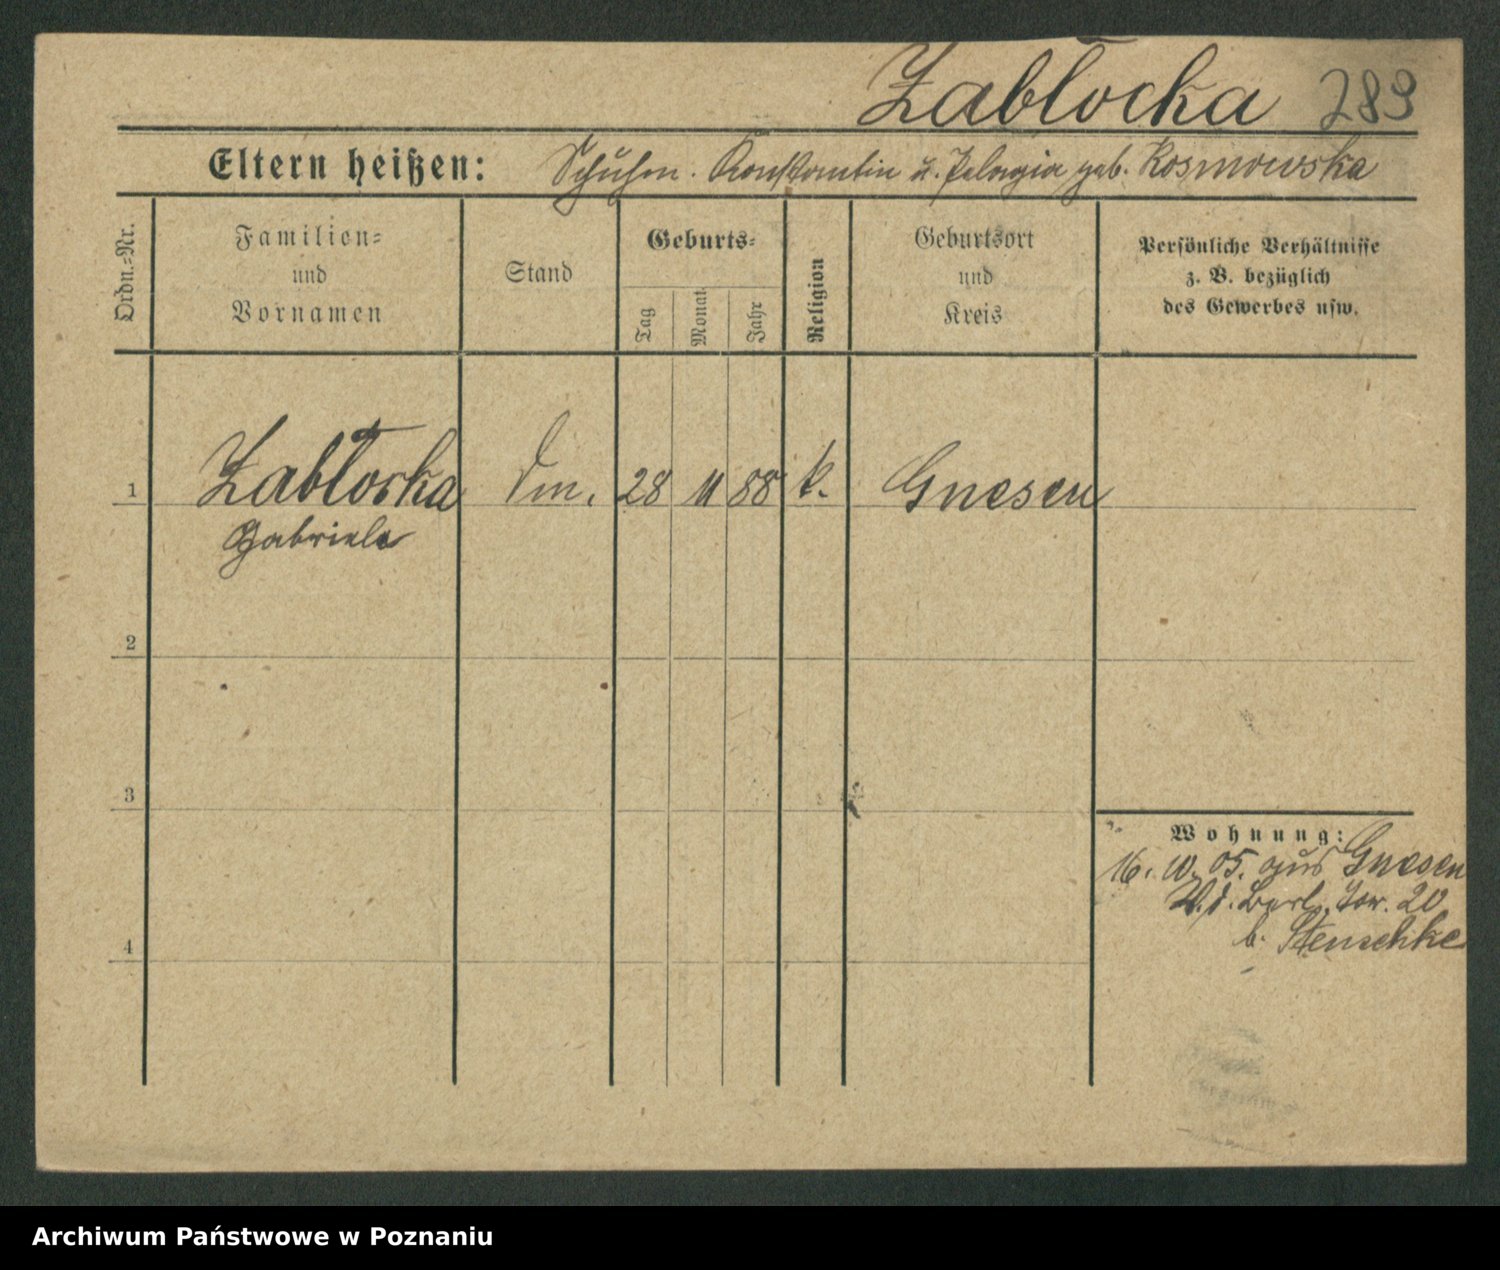 Zabłocka 289
Eltern heißen: Schuhm. Konstantin u. Pelagia geb. Kosmowska
Ordn.-Nr.
Familien-
und
Vornamen
Stand
Geburts-
Tag
Monat
Jahr
Religion
Geburtsort
und
Kreis
Persönliche Verhältnisse
z. B. bezüglich
des Gewerbes usw.
1 Zabłocka 28 11 88 k. Gnesen
Gabriele
2
3
4
Wohnung:
16. 10. 05. aus Gnesen
Berl. Tor. 20
b. Stenschke
Archiwum Państwowe w Poznaniu